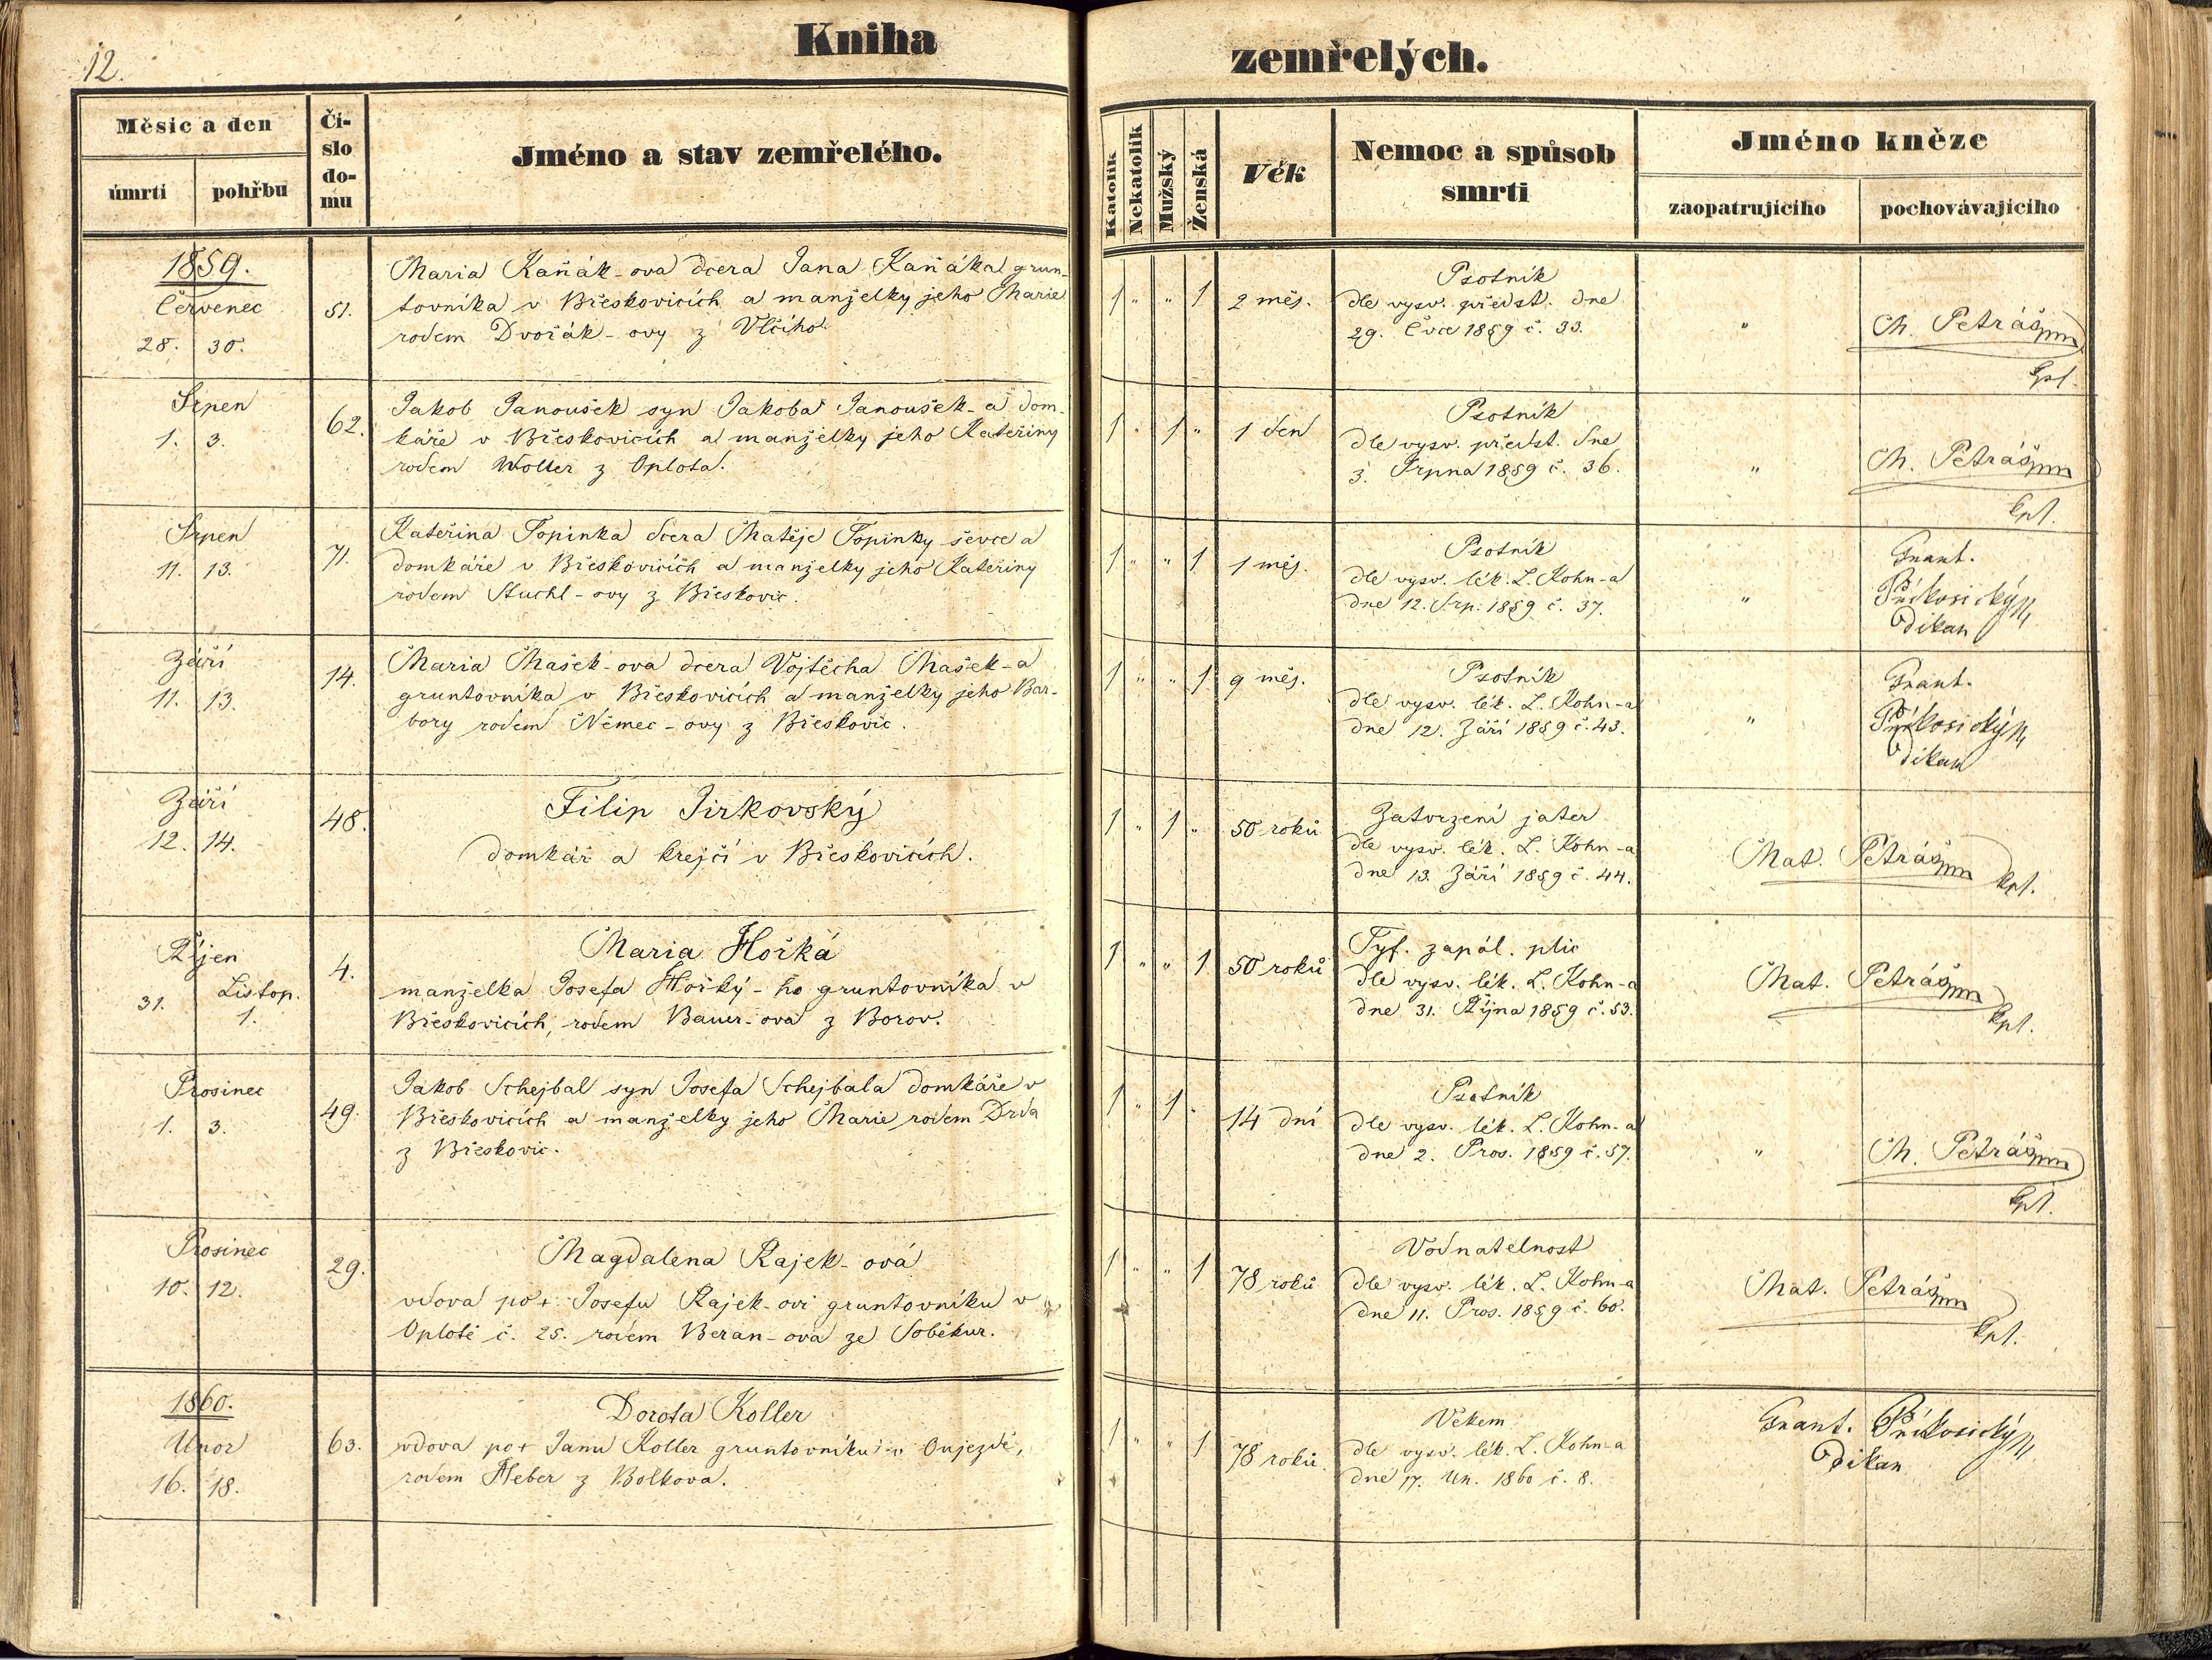 12.
Kniha zemřelých.
Měsíc a den
úmrtí
pohřbu
Čí-
slo
do-
mu
Jméno a stav zemřelého.
Katolík
Nekatolík
Mužský
Ženská
Věk
Nemoc a spůsob
smrti
Jméno kněze
zaopatrujícího
pochovávajícího
1859.
Červenec
28. 30.
51.
Maria Kaňák-ova dcera Jana Kaňáka grun-
tovníka v Břeskovicích a manželky jeho Marie
rodem Dvořák-ovy z Vlčího.
1 " " 1
2 měs.
Psotník
dle vysv. předst. dne
29. Čvce 1859 č. 33.
"
M. Petráš mm
kpl.
Srpen
1. 3.
62.
Jakob Janoušek syn Jakoba Janoušek-a dom-
káře v Břeskovicích a manželky jeho Kateřiny
rodem Woller z Oplota.
1 " 1 "
1 den
Psotník
dle vysv. předst. dne
3. Srpna 1859 č. 36.
"
M. Petráš mm
kpl.
Srpen
11. 13.
71.
Kateřina Topinka dcera Matěje Topinky ševce a
domkáře v Břeskovicích a manželky jeho Kateřiny
rodem Stuchl-ovy z Břeskovic.
1 " " 1
1 měs.
Psotník
dle vysv. lék. L. Kohn-a
dne 12. Srp. 1859 č. 37.
"
Frant.
Příkosický
děkan
Září
11. 13.
14.
Maria Mašek-ova dcera Vojtěcha Mašek-a
gruntovníka v Břeskovicích a manželky jeho Bar-
bory rodem Němec-ovy z Břeskovic.
1 " " 1
9 měs.
Psotník
dle vysv. lék. L. Kohn-a
dne 12. Září 1859 č. 43.
"
Frant.
Příkosický
děkan
Září
12. 14.
48.
Filip Jirkovský
domkář a krejčí v Břeskovicích.
1 " 1 "
50 roků
Zatvrzení jater
dle vysv. lék. L. Kohn-a
dne 13. Září 1859 č. 44.
Mat. Petráš mm kpl.
Říjen
31. Listop.
1.
4.
Maria Hořká
manželka Josefa Hořký-ho gruntovníka v
Břeskovicích, rodem Bauer-ova z Borov.
1 " " 1
50 roků
Tyf. zapál. plic
dle vysv. lék. L. Kohn-a
dne 31. Října 1859 č. 53.
Mat. Petráš mm
kpl.
Prosinec
1. 3.
49.
Jakob Schejbal syn Josefa Schejbala domkáře v
Břeskovicích a manželky jeho Marie rodem Drda
z Břeskovic.
1 " 1 "
14 dní
Psotník
dle vysv. lék. L. Kohn-a
dne 2. Pros. 1859 č. 57.
"
M. Petráš mm
kpl.
Prosinec
10. 12.
29.
Magdalena Rajek-ová
vdova po + Josefu Rajek-ovi gruntovníku v
Oplotě č. 25. rodem Beran-ova ze Soběkur.
1 " " 1
78 roků
Vodnatelnost
dle vysv. lék. L. Kohn-a
dne 11. Pros. 1859 č. 60.
Mat. Petráš mm
kpl.
1860.
Únor
16. 18.
63.
Dorota Koller
vdova po + Janu Koller gruntovníku v Oujezdě,
rodem Heber z Bolkova.
1 " " 1
78 roků
Věkem
dle vysv. lék. L. Kohn-a
dne 17. Ún. 1860 č. 8.
Frant. Příkosický
děkan